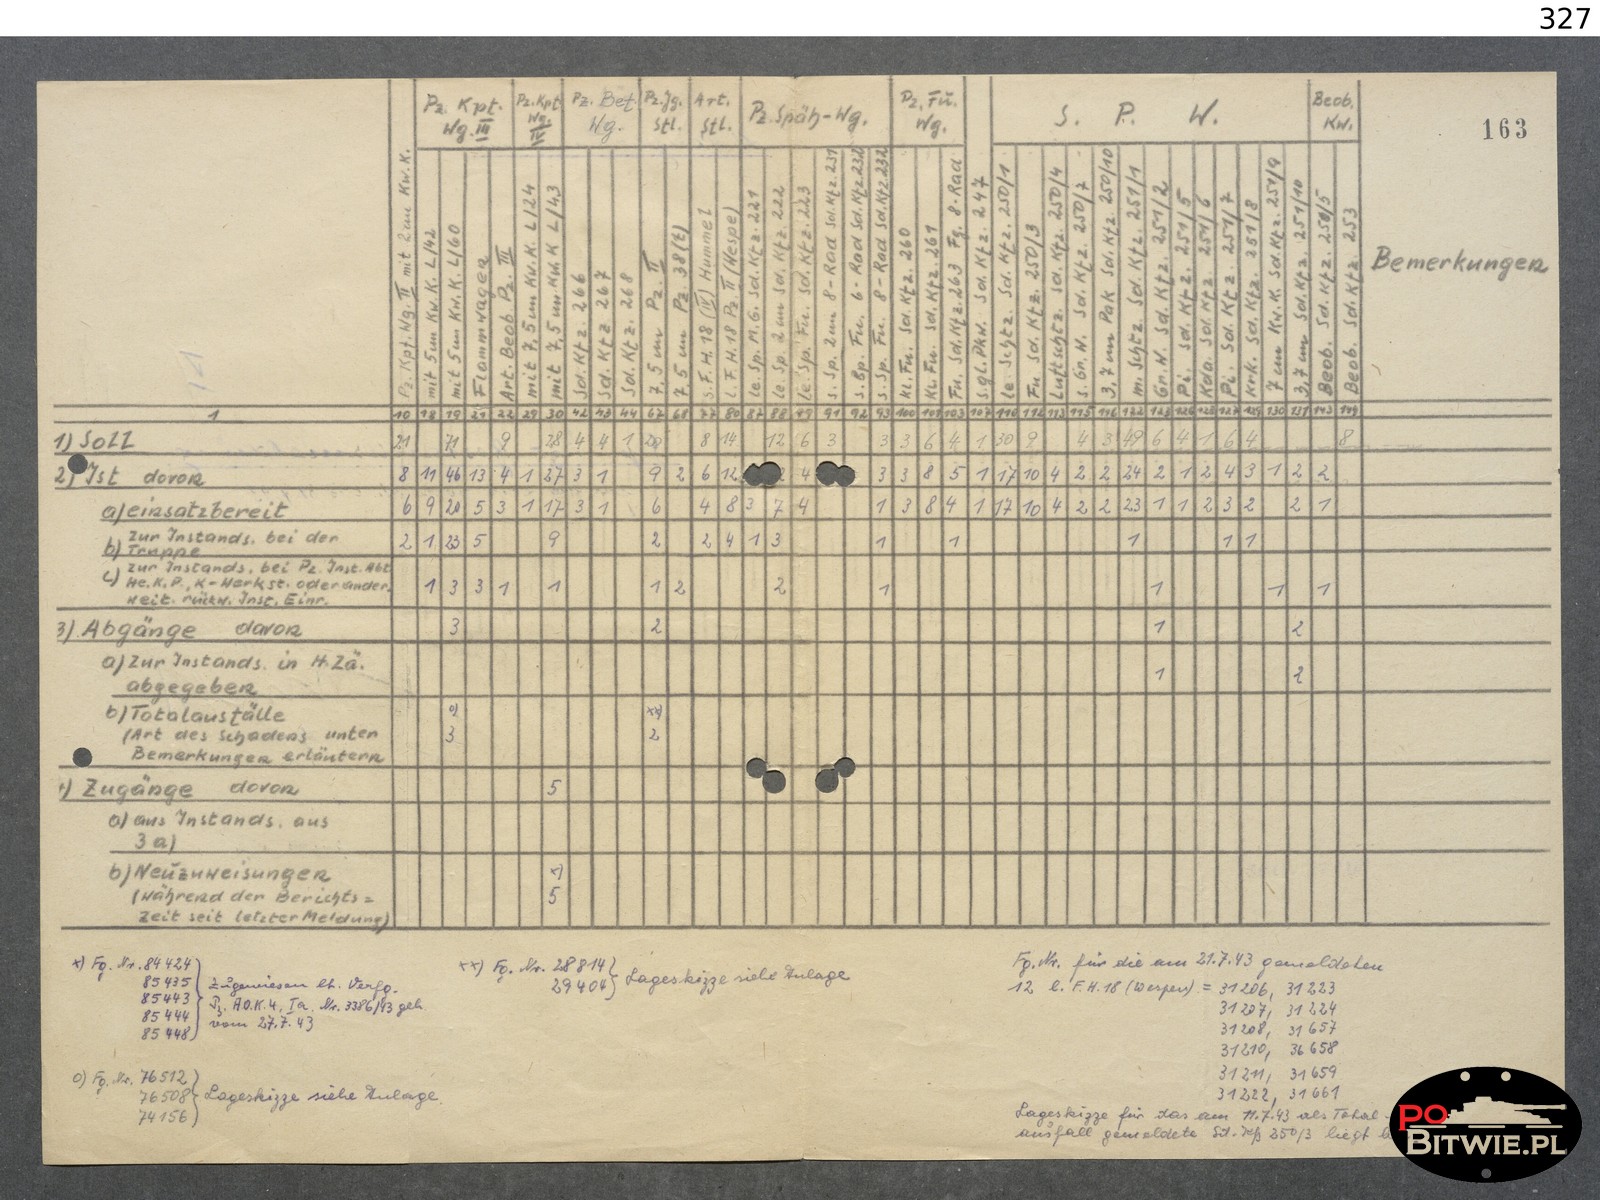 327
163
Pz. Kpt. Wg. III
Pz. Kpt. Wg. IV
Pz. Bef. Wg.
Pz. Jg. Stl.
Art. Stl.
Pz. Späh-Wg.
Pz. Fu. Wg.
S. P. W.
Beob. Kw.
Bemerkungen
Pz. Kpt. Wg. II mit 2 cm Kw. K.
mit 5 cm Kw. K. L/42
mit 5 cm Kw. K. L/60
Flammwagen
Art. Beob Pz. III
mit 7,5 cm Kw. K. L/24
mit 7,5 cm Kw. K L/43
Sd. Kfz. 266
Sd. Kfz 267
Sd. Kfz. 268
7,5 cm Pz. II
7,5 cm Pz. 38(t)
s. F. H. 18 (IV) Hummel
l. F. H. 18 Pz. II (Wespe)
le. Sp. M. G. Sd. Kfz. 221
le. Sp. 2 cm Sd. Kfz. 222
le. Sp. Fu. Sd. Kfz. 223
s. Sp. 2 cm 8-Rad Sd. Kfz. 231
s. Sp. Fu. 6-Rad Sd. Kfz. 232
s. Sp. Fu. 8-Rad Sd. Kfz. 232
Kl. Fu. Sd. Kfz 260
Kl. Fu. Sd. Kfz 261
Fu. Sd. Kfz. 263 Fg. 8-Rad
s. gl. Pkw. Sd. Kfz. 247
le. Schtz. Sd. Kfz. 250/1
Fu Sd. Kfz. 250/3
Luftschtz. Sd. Kfz. 250/4
s. Gr. W. Sd. Kfz. 250/7
3,7 cm Pak Sd. Kfz. 250/10
m. Schtz. Sd. Kfz. 251/1
Gr. W. Sd. Kfz. 251/2
Pi. Sd. Kfz. 251/5
Kdo. Sd. Kfz 251/6
Pi. Sd. Kfz. 251/7
Krk. Sd. Kfz 251/8
7 cm Kw. K. Sd. Kfz. 251/9
3,7 cm Sd. Kfz. 251/10
Beob. Sd. Kfz. 250/5
Beob. Sd. Kfz. 253
1 10 18 19 21 22 29 30 42 43 44 67 68 77 80 87 88 89 91 92 93 100 101 103 107 110 112 113 115 116 122 123 126 128 127 129 130 131 143 149
1) Soll 21 71 9 28 4 4 1 20 8 14 12 6 3 3 3 6 4 1 30 9 4 3 49 6 4 1 6 4 8
2) Ist davon 8 11 46 13 4 1 27 3 1 9 2 6 12 4 3 3 8 5 1 17 10 4 2 2 24 2 1 2 4 3 1 2 2
a) einsatzbereit 6 9 20 5 3 1 17 3 1 6 4 8 3 7 4 1 3 8 4 1 17 10 4 2 2 23 1 1 2 3 2 2 1
zur Instands. bei der
b) Truppe 2 1 23 5 9 2 2 4 1 3 1 1 1 1 1
zur Instands. bei Pz. Inst. Abt
c) He. K. P., K-Werkst. oder ander. 1 3 3 1 1 1 2 2 1 1 1 1
weit. rückw. Inst. Einr.
3) Abgänge davon 3 2 1 2
a) zur Instands. in H. Zä. 1 2
abgegeben
b) Totalausfälle o) xx)
(Art des Schadens unten 3 2
Bemerkungen erläutern
4) Zugänge davon 5
a) aus Instands. aus
3 a)
b) Neuzuweisungen x)
(während der Berichts= 5
zeit seit letzter Meldung)
x) Fg. Nr. 84424
85435
85443
85444
85448
zugewiesen lt. Verfg.
Pz. A.O.K. 4, Ia. Nr. 3386/43 geh.
vom 27.7.43
o) Fg. Nr. 76512
76508
74156
Lageskizze siehe Anlage.
xx) Fg. Nr. 28814
29404
Lageskizze siehe Anlage
Fg. Nr. für die am 21.7.43 gemeldeten
12 l. F. H. 18 (Wespen) = 31206, 31223
31207, 31224
31208, 31657
31210, 31658
31211, 31659
31222, 31661
Lageskizze für das am 11.7.43 als Total-
ausfall gemeldete Sd. Kfz 250/3 liegt
PO
BITWIE.PL